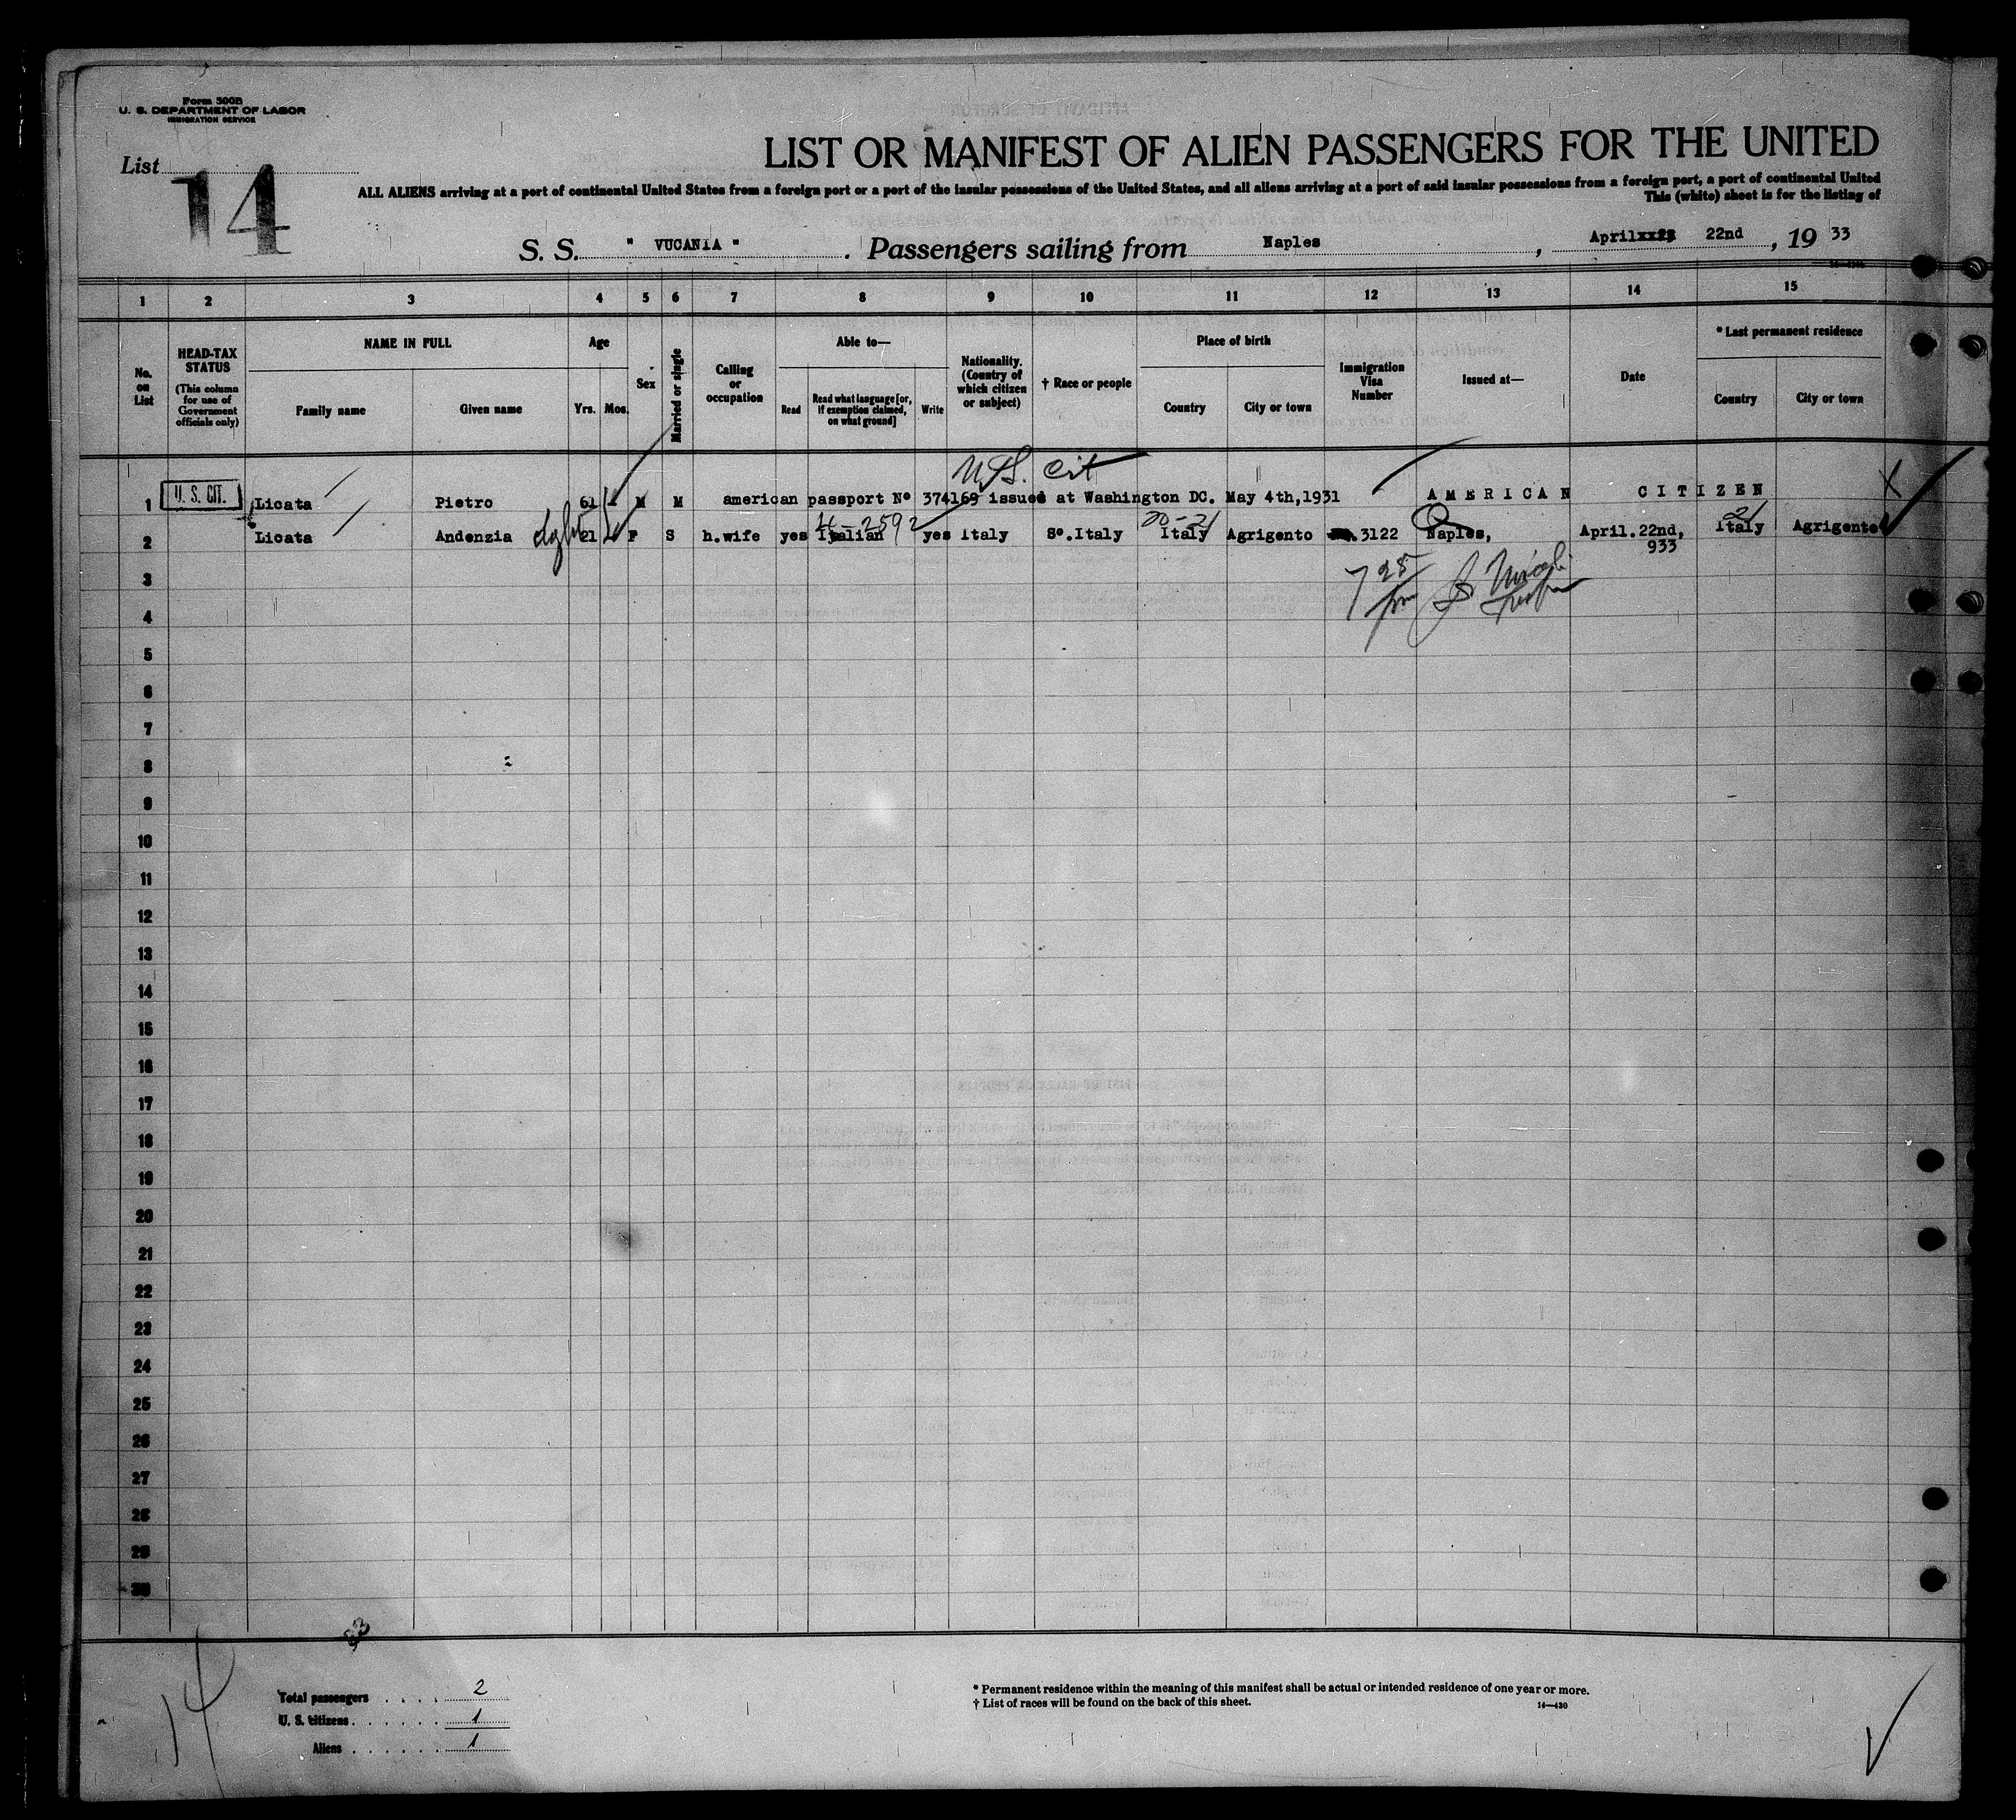 Form 500B
U. S. DEPARTMENT OF LABOR
IMMIGRATION SERVICE
List
14
LIST OR MANIFEST OF ALIEN PASSENGERS FOR THE UNITED
ALL ALIENS arriving at a port of continental United States from a foreign port or a port of the insular possessions of the United States, and all aliens arriving at a port of said insular possessions from a foreign port, a port of continental United
This (white) sheet is for the listing of
S. S. " VUCANIA ". Passengers sailing from Naples, Aprilxx23 22nd, 19 33
1 2 3 4 5 6 7 8 9 10 11 12 13 14 15
No. on List
HEAD-TAX STATUS (This column for use of Government officials only)
NAME IN FULL
Family name Given name
Age
Yrs. Mos.
Sex
Married or single
Calling or occupation
Able to—
Read Read what language [or, if exemption claimed, on what ground] Write
Nationality. (Country of which citizen or subject)
† Race or people
Place of birth
Country City or town
Immigration Visa Number
Issued at—
Date
* Last permanent residence
Country City or town
U.S. Cit
1 U. S. CIT. Licata Pietro 61 M M american passport Nº 374169 issued at Washington DC. May 4th,1931 AMERICAN CITIZEN X
4-2592 20-21 21
2 Licata Andenzia dght 21 F S h.wife yes Italian yes Italy Sº.Italy Italy Agrigento 3122 Naples, April.22nd, Italy Agrigento
933
3
7 25
pm
4
5
6
7
8
9
10
11
12
13
14
15
16
17
18
19
20
21
22
23
24
25
26
27
28
29
30
14
Total passengers . . . . 2
U. S. citizens . . . . . . 1
Aliens . . . . . . 1
* Permanent residence within the meaning of this manifest shall be actual or intended residence of one year or more.
† List of races will be found on the back of this sheet.
14—430